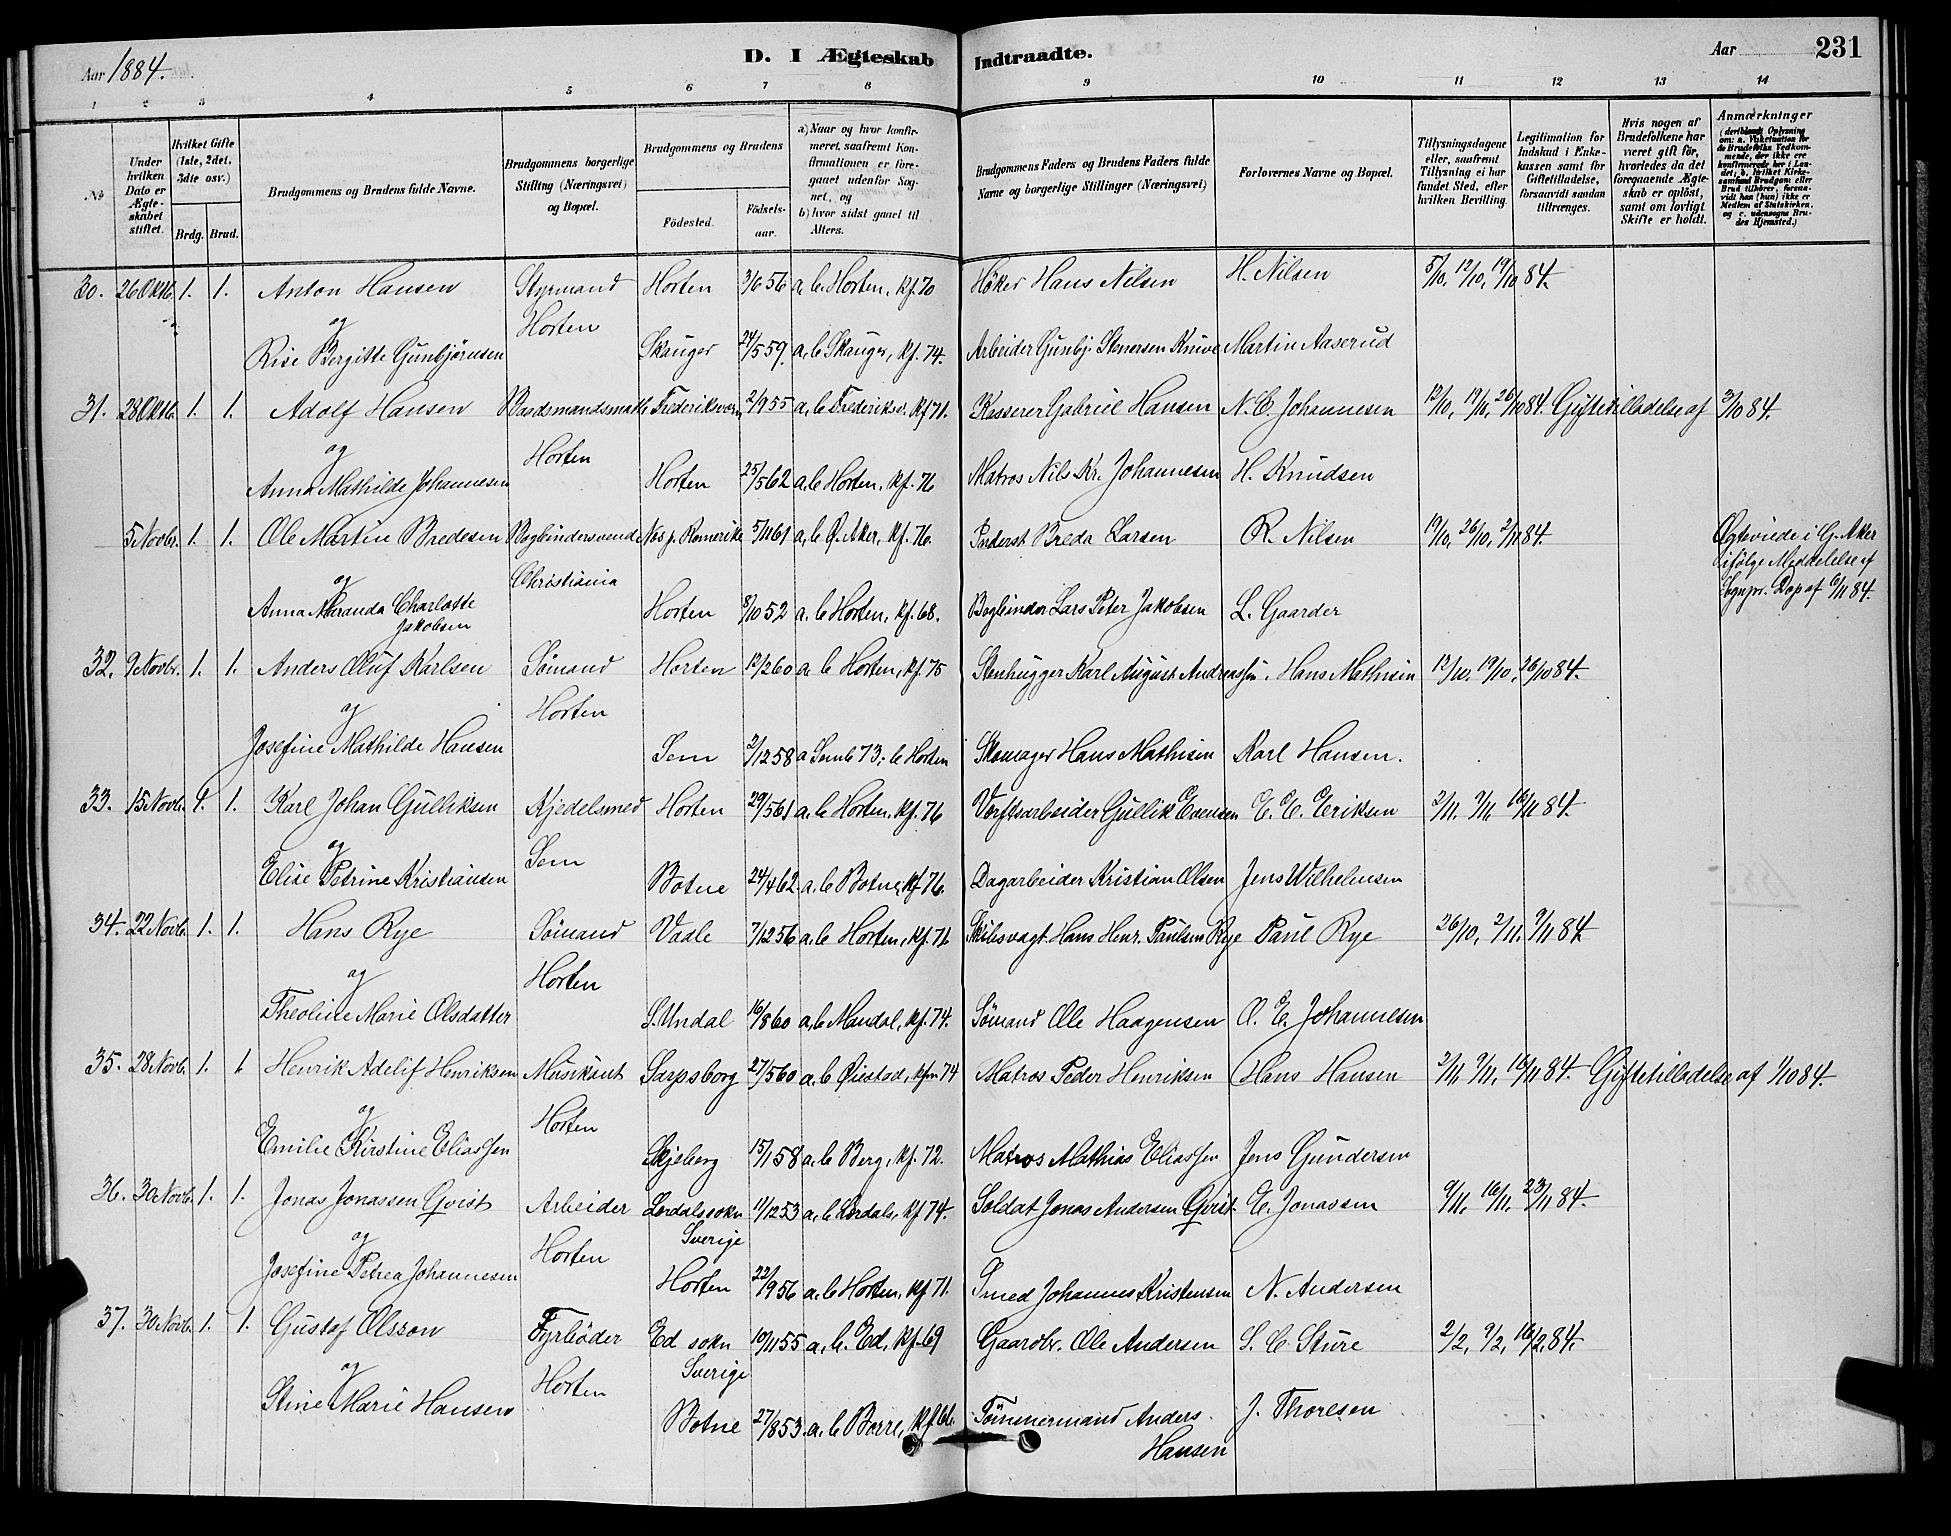 Aar 1884.
D. I Ægteskab Indtraadte.
Aar
231
1 2 3 4 5 6 7 8 9 10 11 12 13 14
No
Under hvilken Dato er Ægteskabet stiftet.
Hvilket Gifte (1ste, 2det, 3die osv.)
Brdg. Brud.
Brudgommens og Brudens fulde Navne.
Brudgommens borgerlige Stilling (Næringsvei) og Bopæl.
Brudgommens og Brudens
Födested.
Födselsaar.
a) Naar og hvor konfirmeret, saafremt Konfirmationen er foregaaet udenfor Sognet, og
b) hvor sidst gaaet til Alters.
Brudgommens Faders og Brudens Faders fulde Navne og borgerlige Stillinger (Næringsvei)
Forlovernes Navne og Bopæl.
Tillysningsdagene eller, saafremt Tillysning ei har fundet Sted, efter hvilken Bevilling.
Legitimation for Indskud i Enkekassen samt for Giftetilladelse, forsaavidt saadan tiltrænges.
Hvis nogen af Brudefolkene har været gift før, hvorledes da det foregaaende Ægteskab er opløst, samt om lovligt Skifte er holdt.
Anmærkninger
30. 26 Oktb. 1. 1. Anton Hansen Styrmand Horten 3/6 56 a. b. Horten, kf. 70 Høker Hans Nilsen H. Nilsen 5/10, 12/10, 19/10 84.
og Horten
Rise Bergitte Gunbjørnsen Skauger 24/5 59. a. b. Skauger, kf. 74. Arbeider Gunbj. Stenersen Knive Martin Aaserud
31. 28 Oktb. 1. 1. Adolf Hansen Baadsmandsmath Frederiksværn 2/9 55 a. b. Frederiksv. kf 71. Kasserer Gabriel Hansen N. C. Johannesen 12/10, 19/10, 26/10 84. Giftetilladelse af 3/10 84.
og Horten
Anna Mathilde Johannesen Horten 25/5 62 a. b. Horten, kf. 76 Matros Nils Kr. Johannesen H. Knudsen
5 Novbr. 1. 1. Ole Martin Bredesen Bogbindersvend Nes p. Romerike 5/11 61 a. b. Ø. Aker, kf. 76. Inderst Breda Larsen R. Nilsen 19/10, 26/10, 2/11 84. Ægteviede i G. Aker
og Christiania ifølge Meddelelse af
Anna Miranda Charlotte Jakobsen Horten 8/10 52 a. b. Horten, kf. 68. Bogbinder Lars Peter Jakobsen L. Gaarder Sognpr. Dop af 6/11 84.
32. 9 Novbr. 1. 1. Anders Oluf Karlsen Sømand Horten 12/2 60 a. b. Horten, kf. 75 Stenhugger Karl August Andreassen. Hans Mathisen 12/10, 19/10, 26/10 84.
og Horten
Josefine Mathilde Hansen Sem 2/12 58 a Sem b 73; b Horten Skomager Hans Mathisen Karl Hansen.
33. 15 Novb. 1. 1. Karl Johan Gulliksen Kjedelsmed Horten 29/5 61 a. b. Horten, kf. 76 Verftsarbeider Gullik Evensen E. E. Eriksen 2/11, 9/11, 16/11 84.
og Sem
Elise Petrine Kristiansen Botne 24/4 62. a. b Botne, kf 76. Dagarbeider Kristian Olsen Jens Wilhelmsen
34. 22 Novb. 1. 1. Hans Rye Sømand Vaale 7/12 56 a. b. Horten, kf. 71 Skibsvagt. Hans Henr. Paulsen Rye Paul Rye 26/10, 2/11, 9/11 84
og Horten
Theoline Marie Olsdatter S. Undal 16/8 60 a. b. Mandal, kf. 74. Sømand Ole Haagensen O. E. Johannesen
35. 28 Novb. 1. 1 Henrik Adelif Henriksen Musikant Sarpsborg 27/5 60 a. b. Øiestad, kfm 74 Matros Peder Henriksen Hans Hansen 2/11, 9/11, 16/11 84. Giftetilladelse af 1/10 84.
og Horten
Emilie Kirstine Eliassen Skjeberg 15/1 58 a. b. Berg, kf. 72. Matros Mathias Eliassen Jens Gundersen
36. 30 Novb. 1. 1. Jonas Jonassen Qvist Arbeider Lerdals sokn 11/12 53 a. b. Lerdals, kf 74. Soldat Jonas Andersen Qvist. E. Jonassen 9/11, 16/11, 23/11 84.
og Horten Sverige
Josefine Petrea Johannesen Horten 22/9 56 a. b. Horten, kf 71. Smed Johannes Kristensen N. Andersen
37. 30 Novb. 1. 1. Gustaf Olsson Fyrbøder Ed sokn 10/11 55 a. b. Ed, kf. 69 Gaardbr. Ole Andersen S. C. Sture 2/2, 9/2, 16/2, 84.
og Horten Sverige
Stine Marie Hansen Botne 27/8 53. a. b. Borre, kf. 66. Tømmermand Anders Hansen J. Thoresen